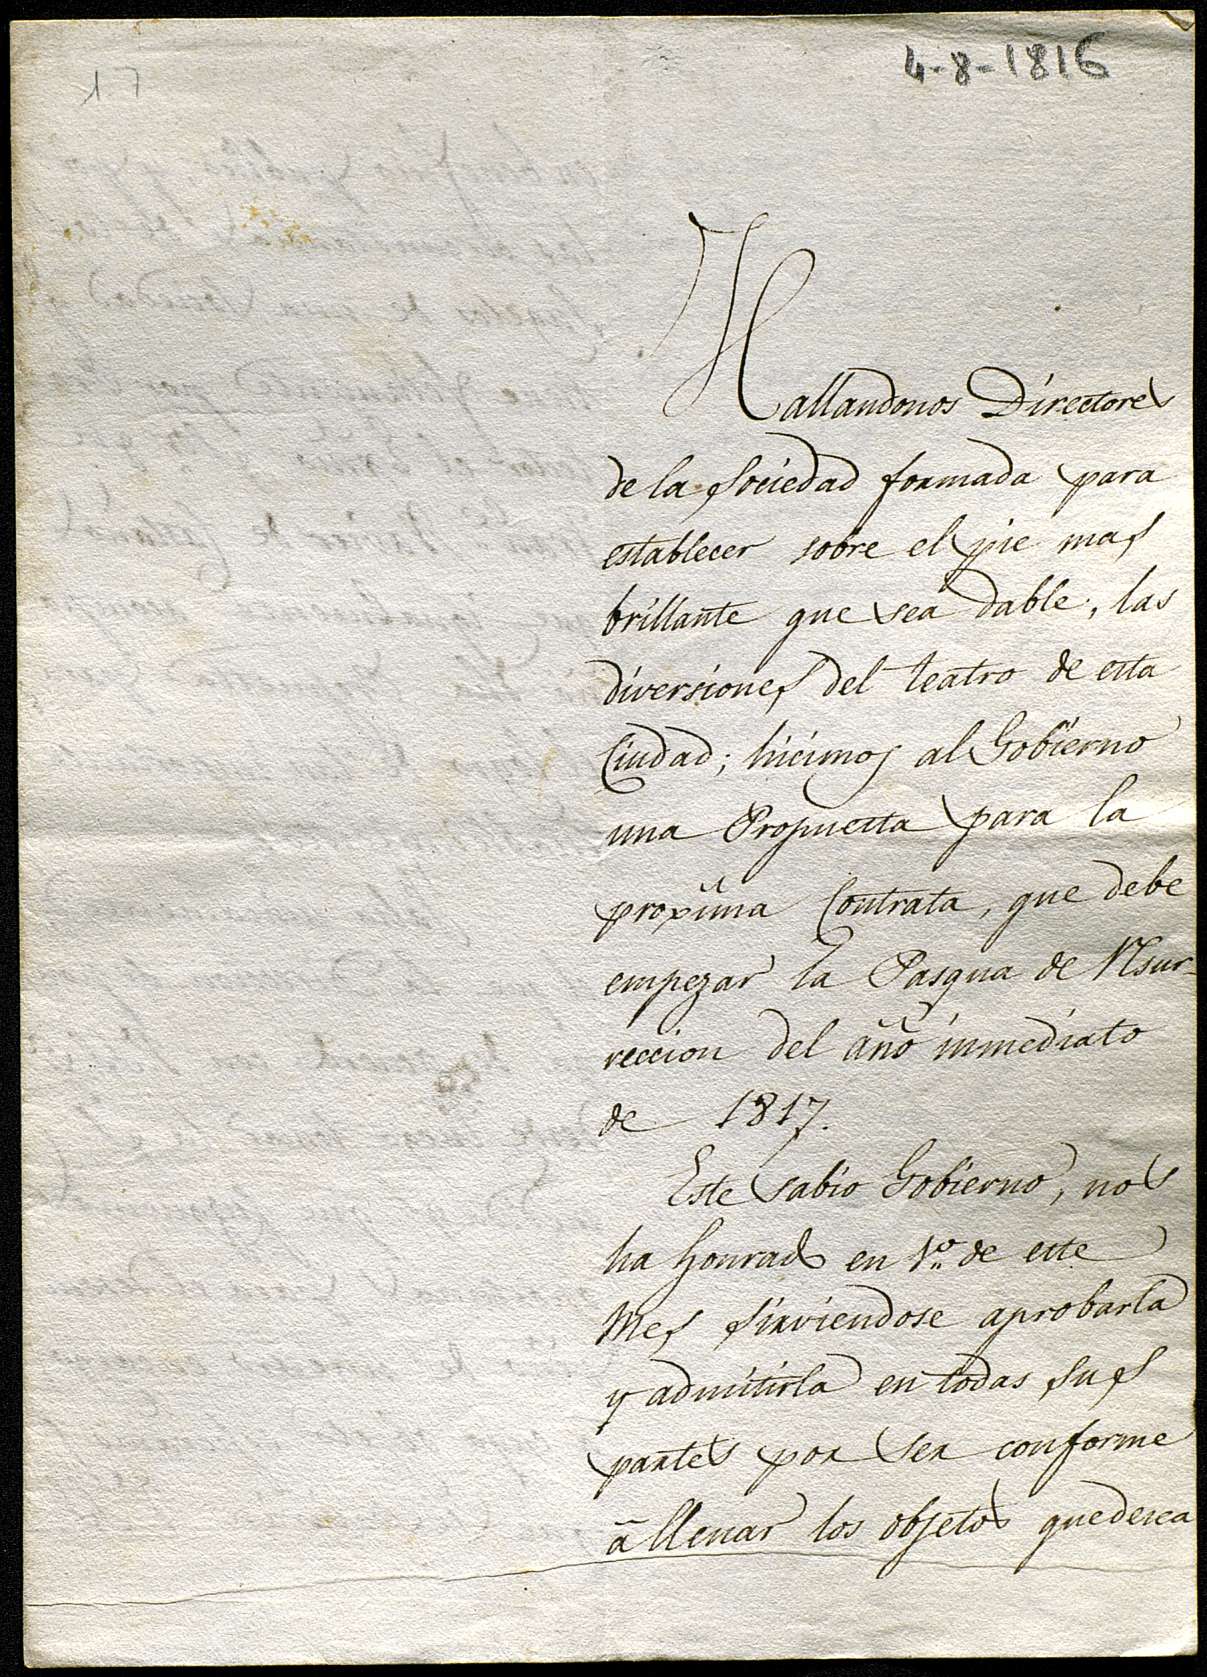 4-8-1816
Hallandonos Directores
de la Sociedad formada para
establecer sobre el pie mas
brillante que sea dable, las
diversiones del teatro de esta
Ciudad; hicimos al Gobierno
una Propuesta para la
proxîma Contrata, que debe
empezar la Pasqua de Resur-
reccion del año inmediato
de 1817.
Este sabio Gobierno, nos
ha honrado en 1.º de este
Mes sirviendose aprobarla
y admitirla en todas sus
partes por ser conforme
â llenar los objetos que desea